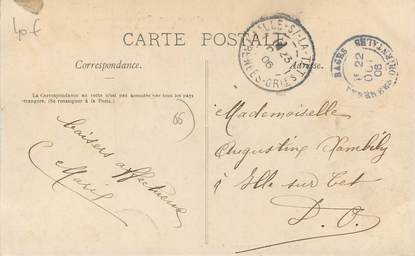 40 f
CARTE POSTALE
ILLE-S-LA-TÊT
23
08
PYRÉNÉES-ORIES
BAGES
22
OCT
08
PYRÉNÉES-ORIENTALES
Correspondance.
Adresse.
La Correspondance au recto n'est pas acceptée par tous les pays
étrangers. (Se renseigner à la Poste.)
66
Mademoiselle
Augustine
à Ille sur Tet
P. O.
baisers affectueux
Marie